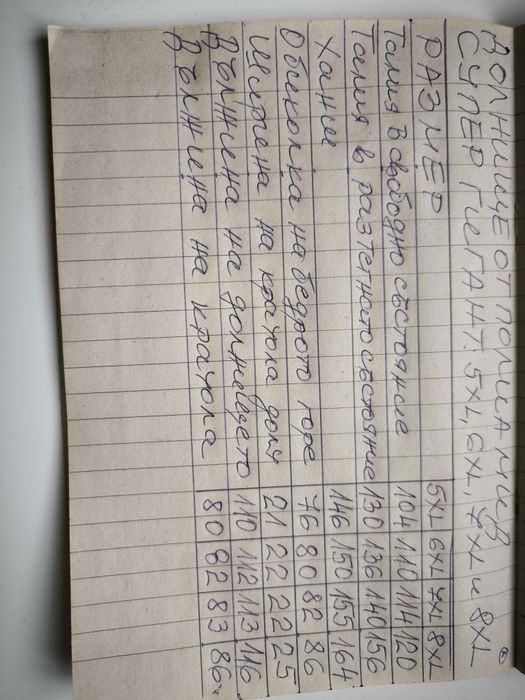 ДОЛНИЩЕ ОТ ПОЛИАМИВ
СУПЕР ГИГАНТ. 5XL, 6XL, 7XL и 8XL
РАЗМЕР 5XL 6XL 7XL 8XL
Талия в свободно състояние 104 110 114 120
Талия в разтегнато състояние 130 136 140 156
Ханш 146 150 155 164
Обиколка на бедрото горе 76 80 82 86
Ширина на крачола долу 21 22 22 25
Дължина на долнището 110 112 113 116
Дължина на крачола 80 82 83 86